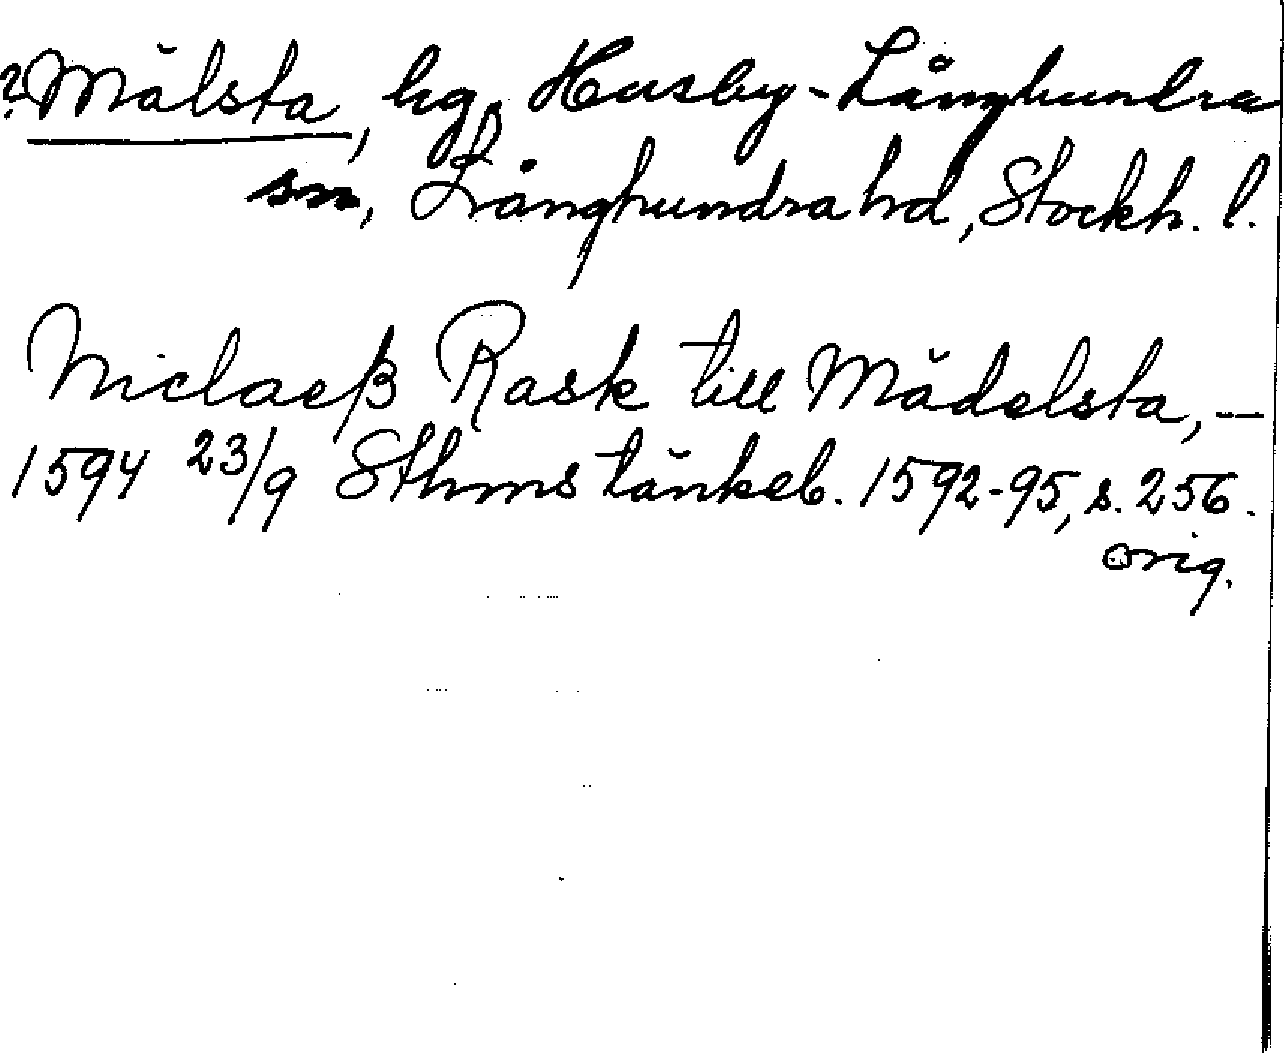 ?Mälsta, hg, Husby-Långhundra
sn, Långhundra hd, Stockh. l.
Niclaeß Rask till Mädelsta, —
1594 23/9 Sthms tänkeb. 1592-95, s. 256.
orig.